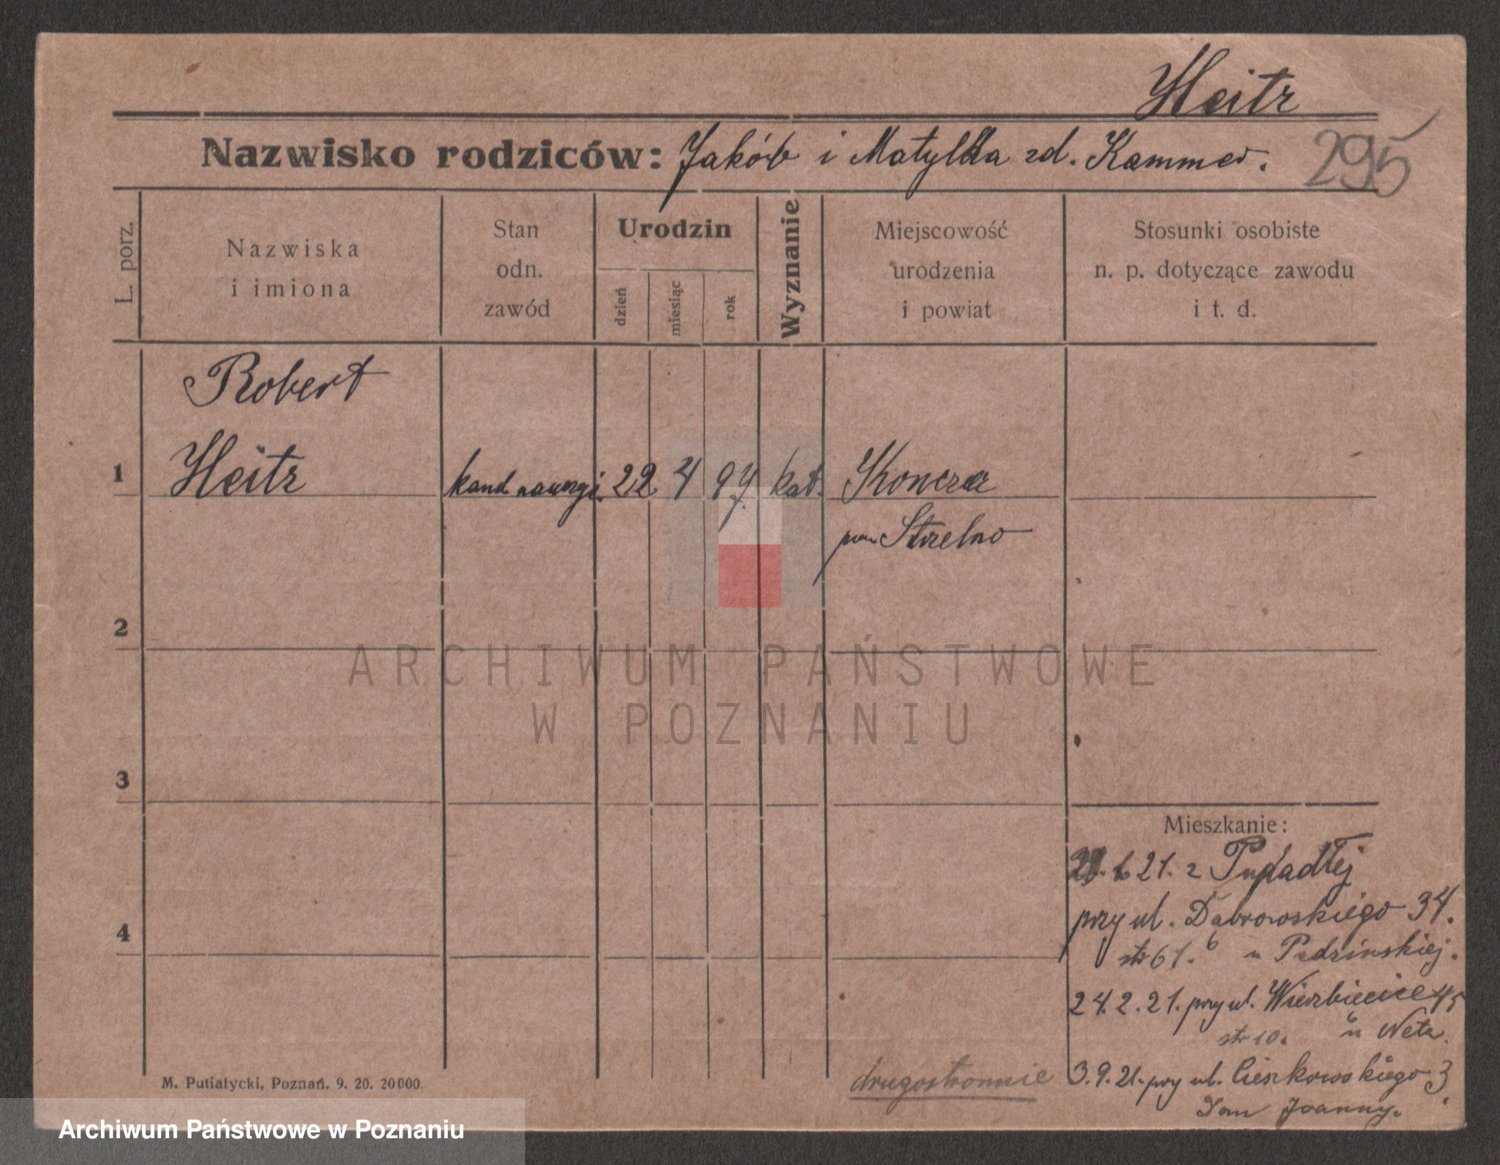 Heitz
Nazwisko rodziców: Jakób i Matylda zd. Kammer.
295
L. porz.
Nazwiska
i imiona
Stan
odn.
zawód
Urodzin
dzień
miesiąc
rok
Wyznanie
Miejscowość
urodzenia
i powiat
Stosunki osobiste
n. p. dotyczące zawodu
i t. d.
Robert
1 Heitz kand 22 4 97. kat.
pow Strelno
2
3
4
Mieszkanie:
21. z
przy ul. Dąbrowskiego 34.
str 61.
24.2.21. przy ul. Wierzbiecice 45
str 10. u Neta.
3.9.21. przy ul. Cieszkowskiego 3.
Joanny.
drugostronnie
M. Putiatycki, Poznań. 9. 20. 20000.
ARCHIWUM PAŃSTWOWE
W POZNANIU
Archiwum Państwowe w Poznaniu